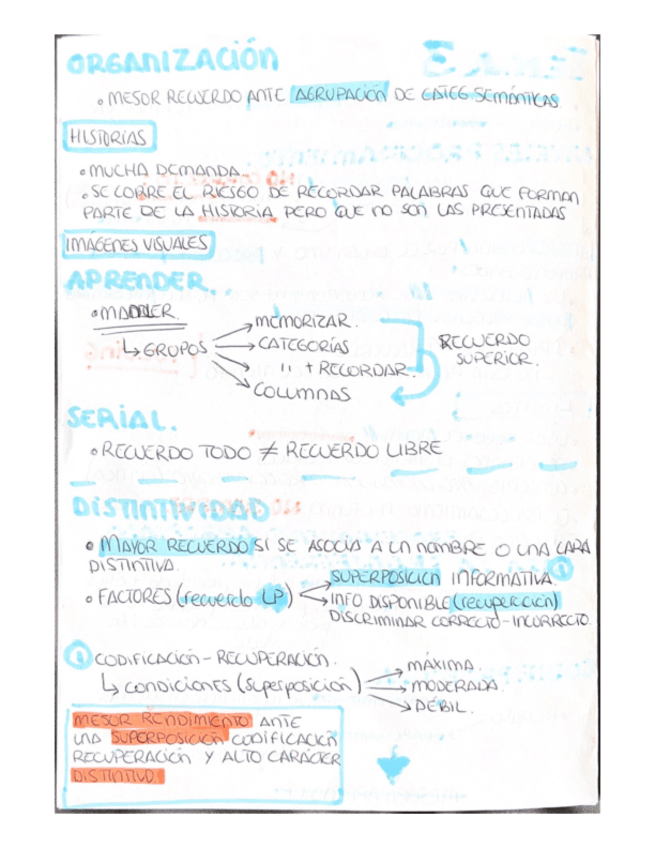 ORGANIZACIÓN
• MEJOR RECUERDO ANTE AGRUPACIÓN DE CATEG. SEMÁNTICAS.
HISTORIAS
• MUCHA DEMANDA.
• SE CORRE EL RIESGO DE RECORDAR PALABRAS QUE FORMAN
PARTE DE LA HISTORIA PERO QUE NO SON LAS PRESENTADAS
IMÁGENES VISUALES
APRENDER.
• MANDLER.
↳ GRUPOS → MEMORIZAR.
→ CATEGORÍAS
→ " + RECORDAR.
→ COLUMNAS
RECUERDO
SUPERIOR.
SERIAL.
• RECUERDO TODO ≠ RECUERDO LIBRE
DISTINTIVIDAD
• MAYOR RECUERDO SI SE ASOCIA A UN NOMBRE O UNA CARA
DISTINTIVA.
• FACTORES (recuerdo LP) → SUPERPOSICIÓN INFORMATIVA. ①
→ INFO DISPONIBLE (recuperación)
DISCRIMINAR CORRECTO-INCORRECTO.
① CODIFICACIÓN - RECUPERACIÓN.
↳ CONDICIONES (superposición) → MÁXIMA.
→ MODERADA.
→ DÉBIL.
MEJOR RENDIMIENTO ANTE
UNA SUPERPOSICIÓN CODIFICACIÓN
RECUPERACIÓN Y ALTO CARÁCTER
DISTINTIVO.